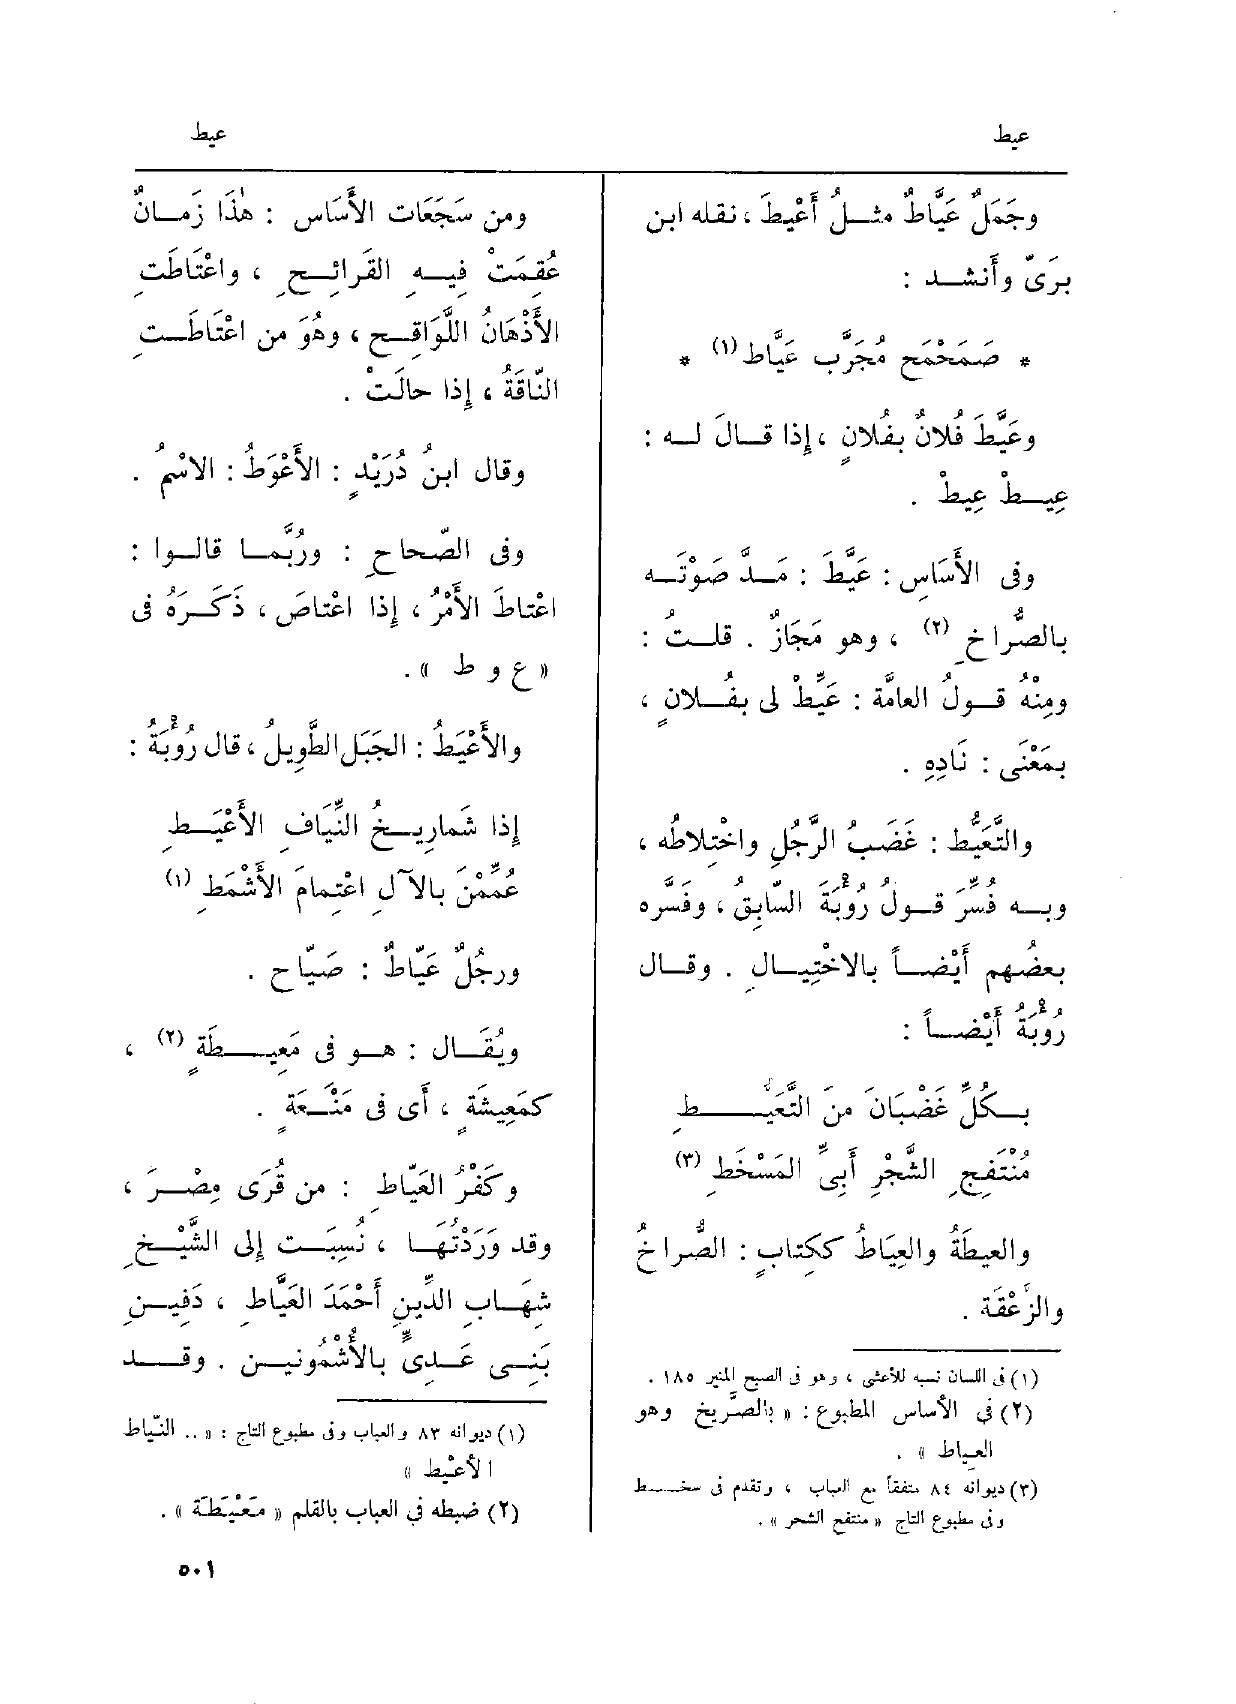 عيط
عيط
وجَمَلٌ عَيَّاطٌ مثلُ أَعْيَطَ ، نقله ابن
برَىّ وأَنشد :
* صَمَحْمَح مُجَرَّب عَيَّاط (١) *
وعَيَّطَ فُلانٌ بفُلانٍ ، إذا قالَ له :
عِيطْ عِيطْ .
وفى الأَسَاسِ : عَيَّطَ : مَدَّ صَوْتَه
بالصُّراخِ (٢) ، وهو مَجَازٌ . قلتُ :
ومِنْهُ قولُ العامَّة : عَيِّطْ لى بفُلانٍ ،
بمَعْنَى : نَادِهِ .
والتَّعَيُّط : غَضَبُ الرَّجُلِ واخْتِلاطُه ،
وبه فُسِّرَ قولُ رُؤْبَةَ السّابِقُ ، وفَسَّره
بعضُهم أَيْضاً بالاخْتِيالِ . وقال
رُؤْبَةُ أَيْضاً :
بكُلِّ غَضْبَانَ منَ التَّعَيُّطِ
مُنْتَفِجِ الشَّجْرِ أَبِىِّ المَسْخَطِ (٣)
والعيطَةُ والعِيَاطُ ككِتابٍ : الصُّراخُ
والزَّعْقَة .
(١) فى اللسان نسبه للأعشى ، وهو فى الصبح المنير ١٨٥ .
(٢) فى الأساس المطبوع : « بالصَّرِيخ وهو
العياط » .
(٣) ديوانه ٨٤ متفقاً مع العباب ، وتقدم فى سخط
وفى مطبوع التاج « منتفح الشحر » .
ومن سَجَعَات الأَسَاس : هٰذَا زَمانٌ
عُقِمَتْ فِيهِ القَرائحِ ، واعْتَاطَتِ
الأَذْهَانُ اللَّوَاقِح ، وهُوَ من اعْتَاطَتِ
النّاقَةُ ، إذا حالَتْ .
وقال ابنُ دُرَيْدٍ : الأَعْوَطُ : الاسْمُ .
وفى الصّحاحِ : ورُبَّما قالوا :
اعْتاطَ الأَمْرُ ، إذا اعْتاصَ ، ذَكَرَهُ فى
« ع و ط » .
والأَعْيَطُ : الجَبَل الطَّوِيلُ ، قال رُؤْبَةُ :
إذا شَمارِيخُ النِّيَافِ الأَعْيَطِ
عُمِّمْنَ بالآلِ اعْتِمامَ الأَشْمَطِ (١)
ورجُلٌ عَيّاطٌ : صَيّاح .
ويُقَال : هو فى مَعِيطَةٍ (٢) ،
كمَعِيشَةٍ ، أَى فى مَنْعَةٍ .
وكَفْرُ العَيّاطِ : من قُرَى مِصْرَ ،
وقد وَرَدْتُهَا ، نُسِبَت إلى الشَّيْخِ
شِهَابِ الدِّينِ أَحْمَدَ العَيَّاطِ ، دَفِينِ
بَنِى عَدِىٍّ بالأُشْمُونين . وقد
(١) ديوانه ٨٣ والعباب وفى مطبوع التاج : « .. النّياط
الأعْيط »
(٢) ضبطه فى العباب بالقلم « مَعْيَطَة » .
٥٠١